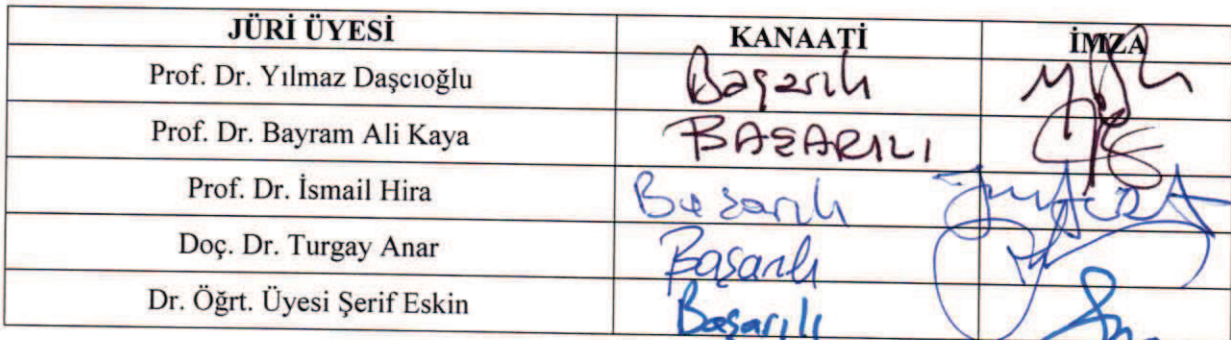 JÜRİ ÜYESİ KANAATİ İMZA
Prof. Dr. Yılmaz Daşcıoğlu Başarılı
Prof. Dr. Bayram Ali Kaya BAŞARILI
Prof. Dr. İsmail Hira Başarılı
Doç. Dr. Turgay Anar Başarılı
Dr. Öğrt. Üyesi Şerif Eskin Başarılı